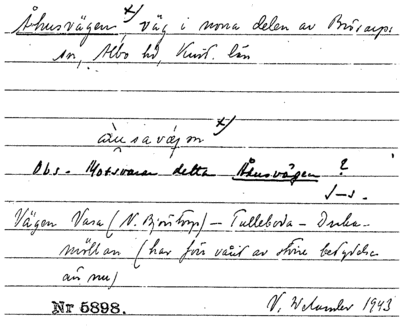 Åhusvägen x), väg i norra delen av Brösarps
sn, Albo hd, Krist. län
åusavæjn x)
Obs. Motsvarar detta Åhusvägen?
J-s.
Vägen Vasa (N. Björstorp) – Tulleboda –
möllan (har förr varit av större betydelse
än nu)
Nr 5898.
1943